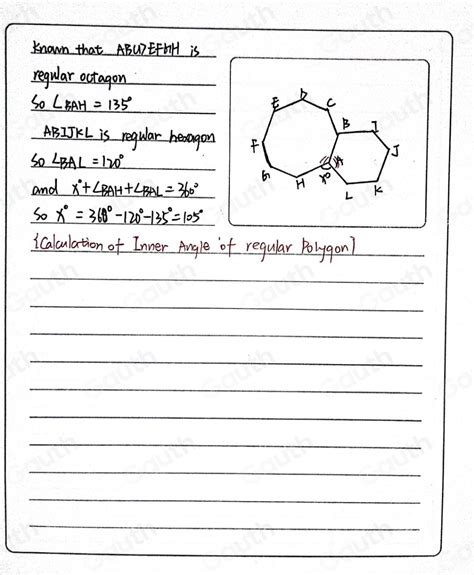 known that ABCDEFGH is
regular octagon
So ∠BAH = 135°
ABIJKL is regular hexagon
So ∠BAL = 120°
and x°+∠BAH+∠BAL = 360°
So x° = 360°-120°-135°=105°
{Calculation of Inner Angle of regular Polygon}
D
E
C
B
I
F
J
A
G
x°
H
K
L
Gauth